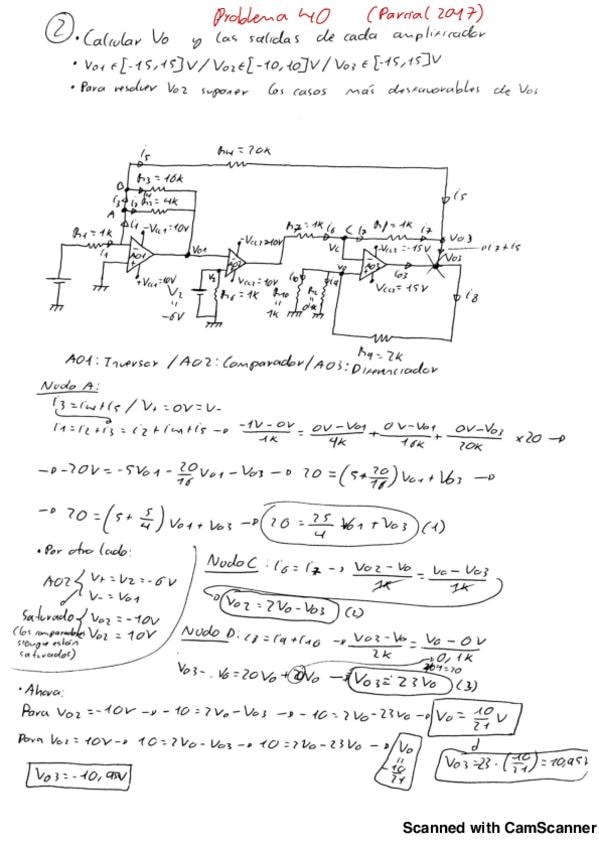 Problema 40 (Parcial 2017)
② • Calcular Vo y las salidas de cada amplificador
• Vo1 ∈ [-15,15]V / Vo2 ∈ [-10,10]V / Vo3 ∈ [-15,15]V
• Para resolver Vo2 suponer los casos más desfavorables de Vo3
R4 = 20K
i5
R3 = 16K
B
R2 = 4K
A
i5
R1 = 1K
i1
AO1
-Vcc1=10V
+Vcc1=10V
Vo1
V2
=
-6V
-Vcc2=10V
Vcc2=10V
R6 = 1K
R7 = 1K
i6
C
i7
R8 = 1K
i7
Vo3
i7+i5
Vo3
-Vcc2=-15V
AO3
Vcc3=15V
io3
i8
R10
=
1K
R9 = 2K
AO1: Inversor / AO2: Comparador / AO3: Diferenciador
Nudo A:
i3 = i4+i5 / V+ = 0V = V-
i1 = i2+i3 = i2+i4+i5 → -1V-0V/1K = 0V-Vo1/4K + 0V-Vo1/16K + 0V-Vo3/20K x20 →
→ -20V = -5Vo1 - 20/16 Vo1 - Vo3 → 20 = (5+20/16) Vo1 + Vo3 →
→ 20 = (5+5/4) Vo1 + Vo3 → 20 = 25/4 Vo1 + Vo3 (1)
• Por otro lado:
AO2 { V+ = V2 = -6V
V- = Vo1
Saturado { Vo2 = -10V
Vo2 = 10V
(los comparadores
siempre están
saturados)
Nudo C: i6 = i7 → Vo2-Vo/1K = Vo-Vo3/1K
→ Vo2 = 2Vo-Vo3 (2)
Nudo D: i8 = i9+i10 → Vo3-Vo/2K = Vo-0V/0,1K
Vo3 - Vo = 20Vo + 20Vo → Vo3 = 23Vo (3)
• Ahora:
Para Vo2 = -10V → -10 = 2Vo-Vo3 → -10 = 2Vo-23Vo → Vo = 10/21 V
Para Vo2 = 10V → 10 = 2Vo-Vo3 → 10 = 2Vo-23Vo → Vo = -10/21
Vo3 = 23 · (10/21) = 10,953
Vo3 = -10,95V
Scanned with CamScanner